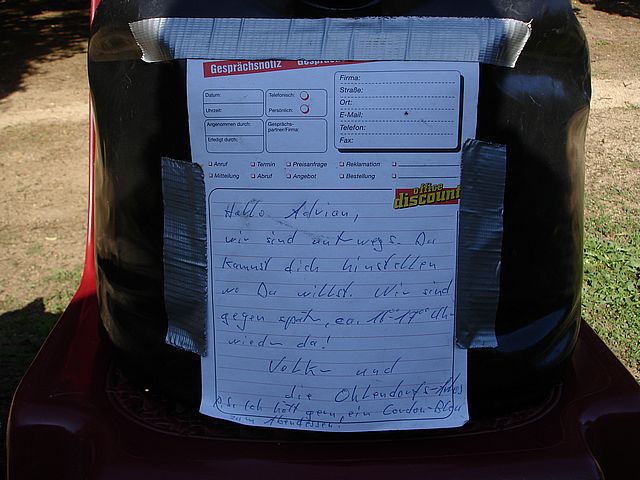 Gesprächsnotiz Gespräc
Datum:
Uhrzeit:
Telefonisch:
Persönlich:
Angenommen durch:
Erledigt durch:
Gesprächs-
partner/Firma:
Firma:
Straße:
Ort:
E-Mail:
Telefon:
Fax:
Anruf Termin Preisanfrage Reklamation
Mitteilung Abruf Angebot Bestellung
office
discount
Hallo Adrian,
wir sind unterwegs. Du
kannst dich hinstellen
wo Du willst. Wir sind
gegen später, ca. 16°°-17°° Uhr
wieder da!
Volker und
die Ohlendorfs
P.S. Ich hätt gern, ein Cordon-Bleu
zum Abendessen.